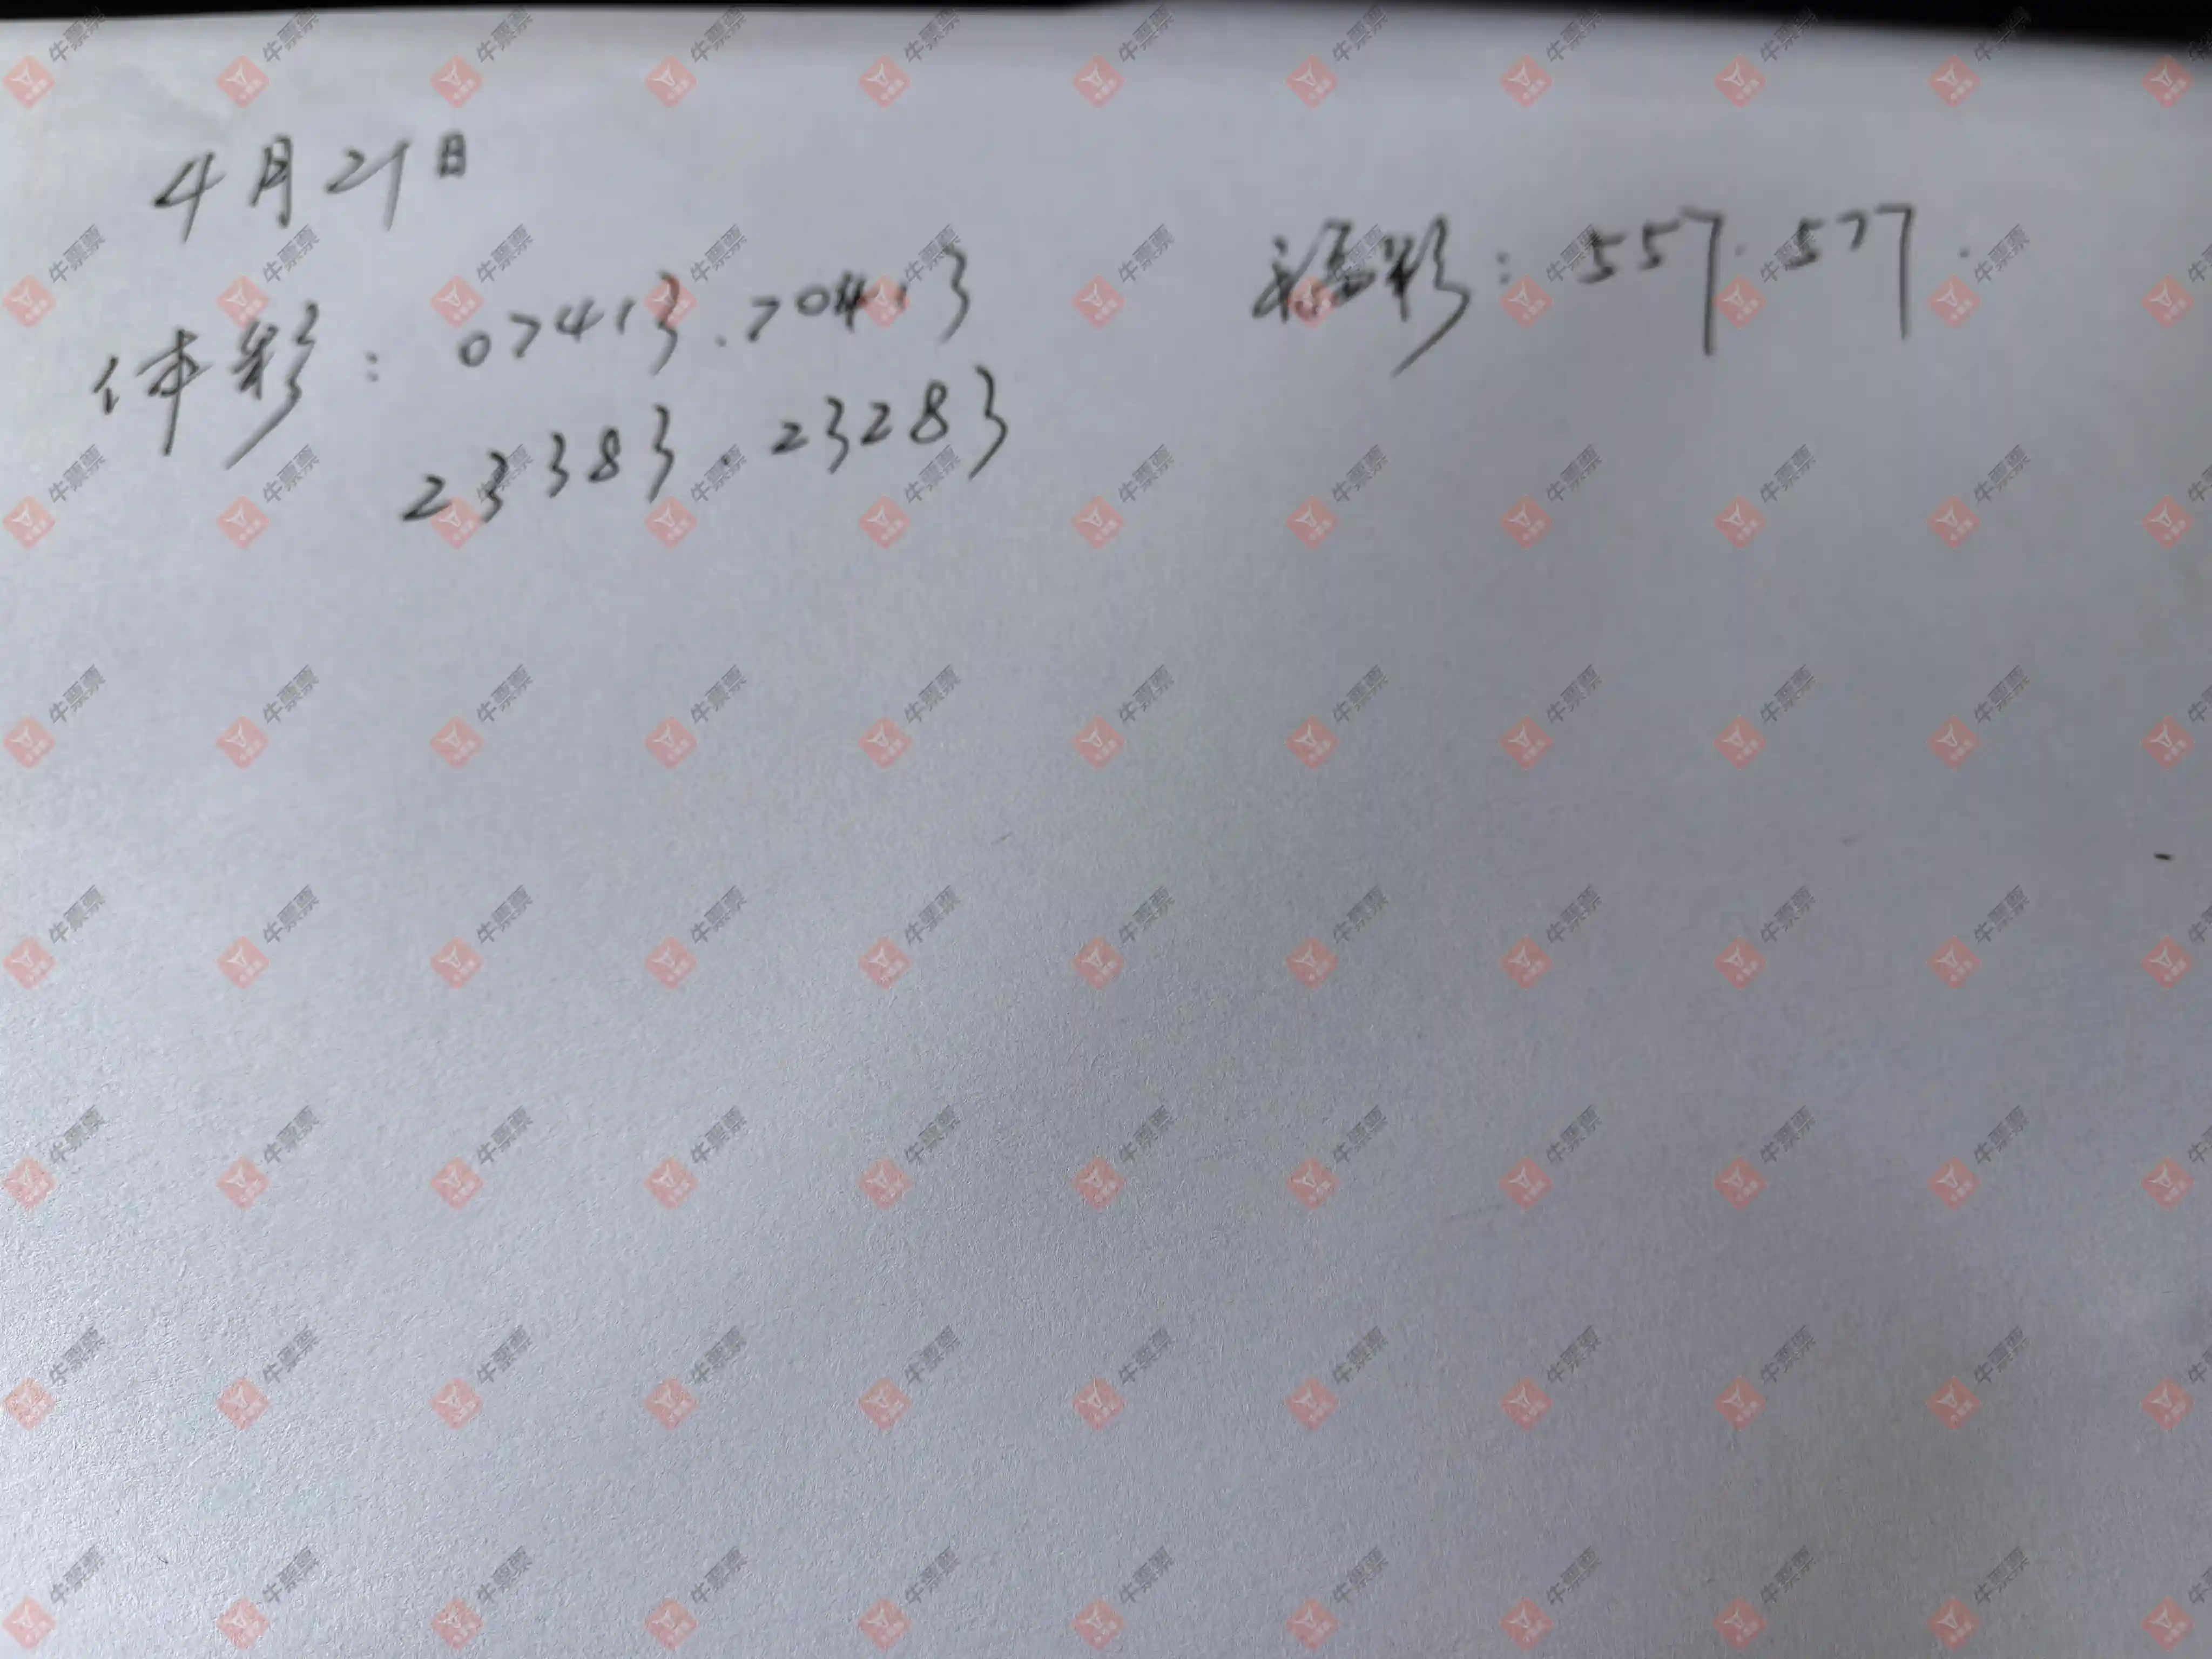 4月21日
体彩：07413.70413
23383.23283
福彩：557.577.
牛票票